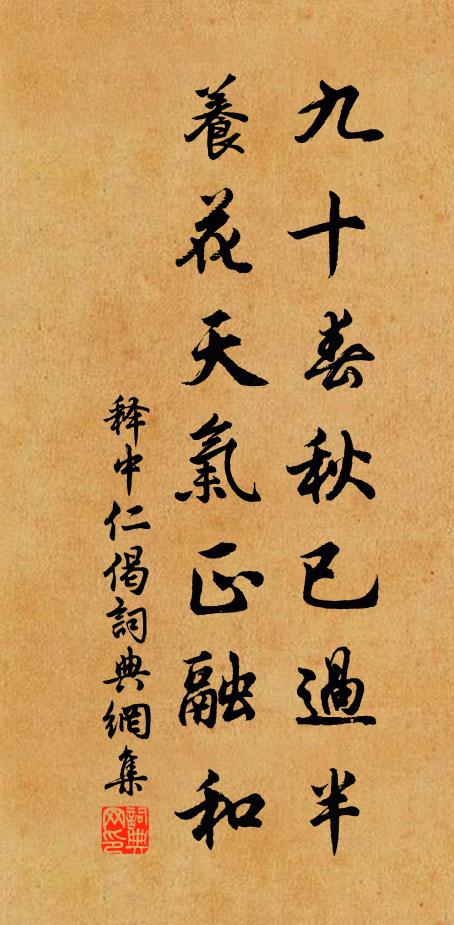 九十春秋已過半
養花天氣正融和
释中仁偈詞典網集
詞典网印